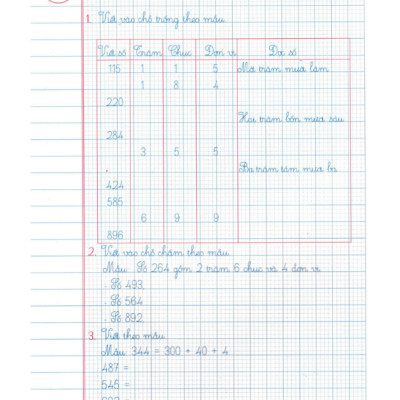 1. Viết vào chỗ trống theo mẫu.
Viết số Trăm Chục Đơn vị Đọc số
115 1 1 5 Một trăm mười lăm
1 8 4
220
Hai trăm bốn mươi sáu
284
3 5 5
Ba trăm tám mươi ba
424
585
6 9 9
896
2. Viết vào chỗ chấm theo mẫu.
Mẫu: Số 264 gồm 2 trăm 6 chục và 4 đơn vị
- Số 493
- Số 564
- Số 892
3. Viết theo mẫu
Mẫu: 344 = 300 + 40 + 4
487 =
545 =